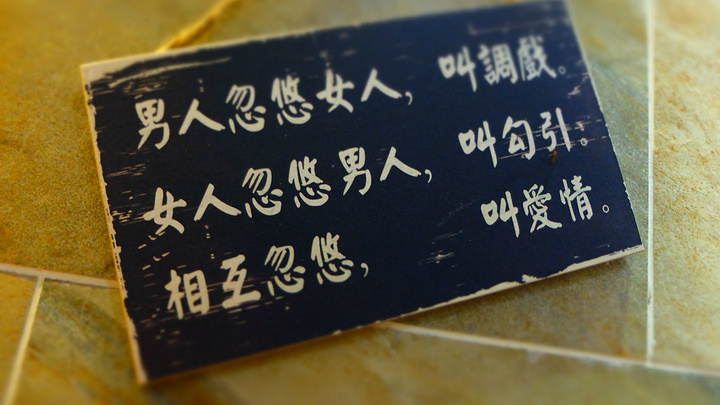 男人忽悠女人，叫調戲。
女人忽悠男人，叫勾引。
相互忽悠，叫愛情。